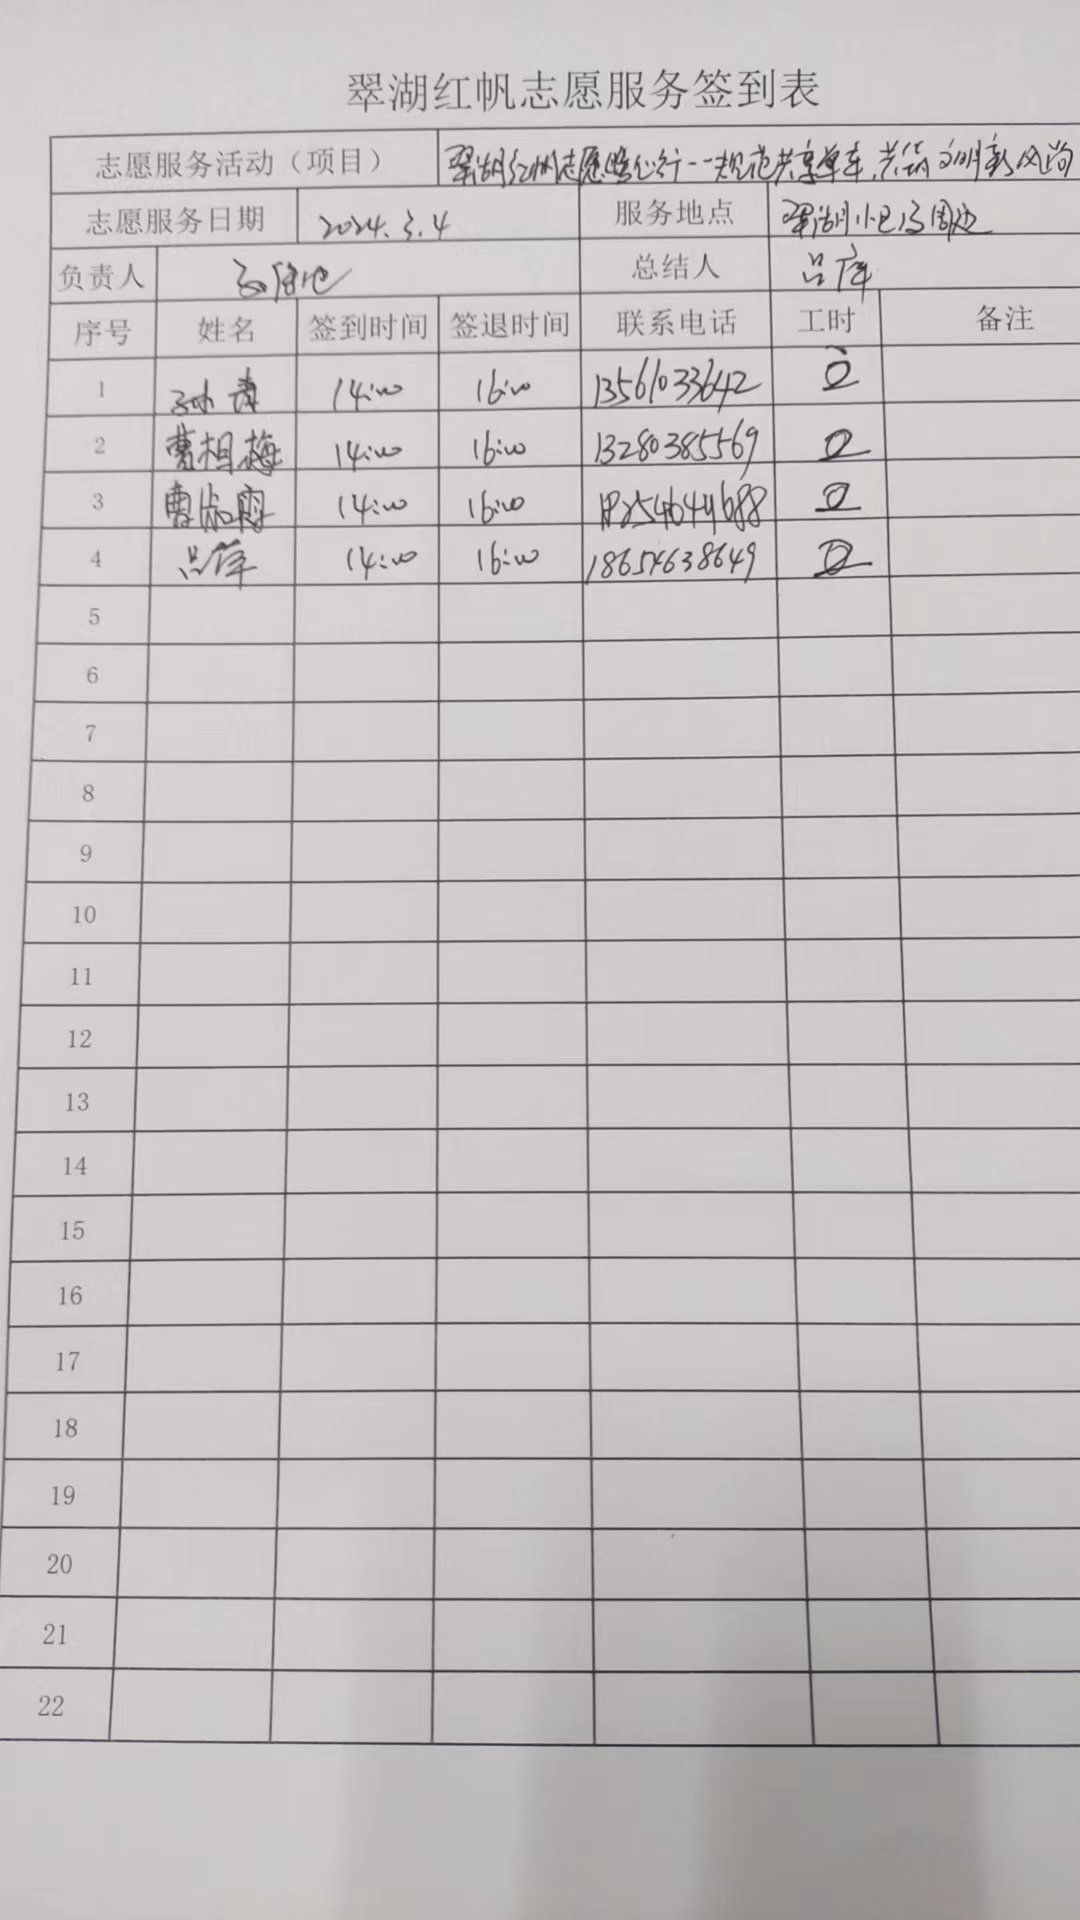 翠湖红帆志愿服务签到表
志愿服务活动（项目） 翠湖红帆志愿 行——规范共享单车，共筑文明新风尚
志愿服务日期 2024.3.4 服务地点 翠湖小区 周边
负责人 总结人 吕萍
序号 姓名 签到时间 签退时间 联系电话 工时 备注
1 孙 14:00 16:00 13561033642 2
2 曹相梅 14:00 16:00 13280385569 2
3 曹 14:00 16:00 2
4 吕萍 14:00 16:00 18654638649 2
5
6
7
8
9
10
11
12
13
14
15
16
17
18
19
20
21
22